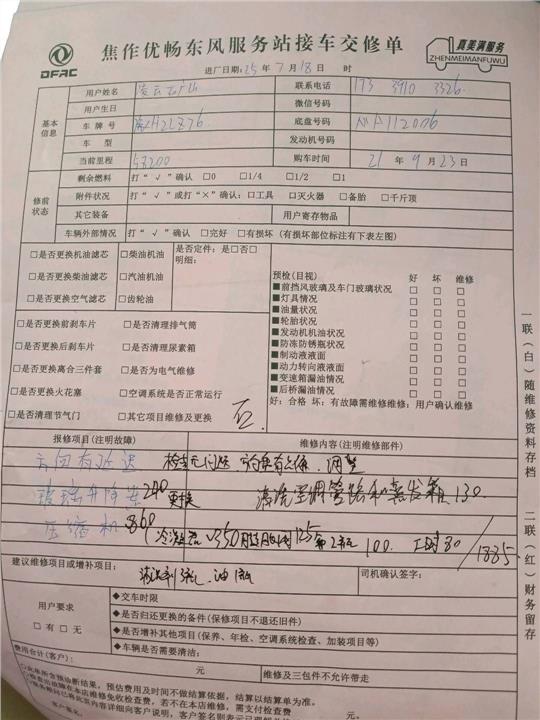 DFAC
焦作优畅东风服务站接车交修单
真美满服务
ZHENMEIMANFUWU
进厂日期：25 年 7 月 18 日 时
基本信息
用户姓名
联系电话 173 3910 3326
用户生日
微信号码
车 牌 号
底盘号码
车 型
发动机号码
当前里程 58200
购车时间 21 年 9 月 23 日
修前状态
剩余燃料 打“√”确认 □0 □1/4 □1/2 □1
附件状况 打“√”或打“×”确认：□工具 □灭火器 □备胎 □千斤顶
其它装备
用户寄存物品
车辆外部情况 打“√”确认 □完好 □有损坏（有损坏部位标注有下表左图）
□是否更换机油滤芯 □柴油机油 是否定件：是□否□
明细：
□是否更换柴油滤芯 □汽油机油
□是否更换空气滤芯 □齿轮油
□是否更换前刹车片 □是否清理排气筒
□是否更换后刹车片 □是否清理尿素箱
□是否更换离合三件套 □是否为电气维修
□是否更换火花塞 □空调系统是否正常运行
□是否清理节气门 □其它项目维修及更换
否
预检（目视） 好 坏 维修
■前挡风玻璃及车门玻璃状况 □ □ □
■灯具情况 □ □ □
■油量状况 □ □ □
■轮胎状况 □ □ □
■发动机机油状况 □ □ □
■防冻防锈瓶状况 □ □ □
■制动液液面 □ □ □
■动力转向液液面 □ □ □
■变速箱漏油情况 □ □ □
■后桥漏油情况 □ □ □
好：合格 坏：有故障需维修维修：用户确认维修
报修项目（注明故障）
维修内容（注明维修部件）
方向有延迟 检查无问题 调整
玻璃升降 240 更换 清洗空调管路和蒸发箱 130
压缩机 860 冷凝器 350 125 100 工时 80 / 1885
建议维修项目或增补项目：
司机确认签字：
用户要求
□ 有 □ 无
◆交车时限
◆是否归还更换的备件（保修项目不退还旧件）
◆是否增补其他项目（保养、年检、空调系统检查、加装项目等）
◆车辆是否需要清洁：
费用合计（客户）： 元
维修及三包件不允许带走
预估费用及时间不做结算依据，结算以结算单为准。
元
一联（白）随维修资料存档
二联（红）财务留存